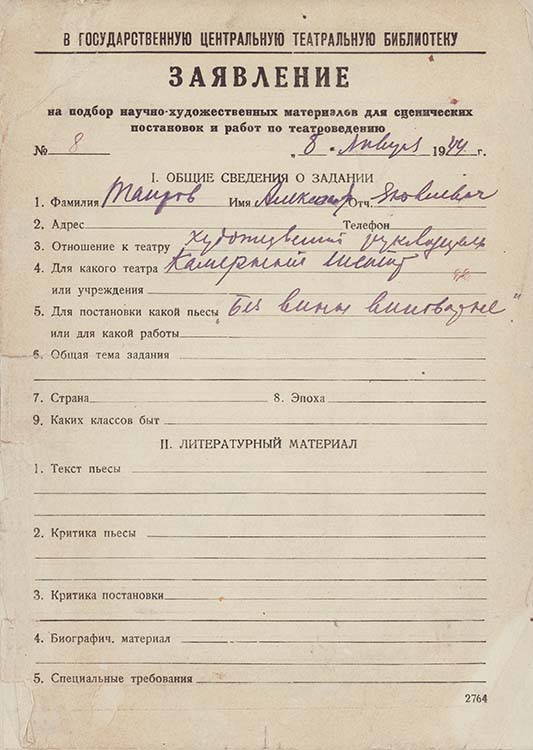 В ГОСУДАРСТВЕННУЮ ЦЕНТРАЛЬНУЮ ТЕАТРАЛЬНУЮ БИБЛИОТЕКУ
ЗАЯВЛЕНИЕ
на подбор научно-художественных материалов для сценических
постановок и работ по театроведению
№ 8 „8" Января 1944 г.
I. ОБЩИЕ СВЕДЕНИЯ О ЗАДАНИИ
1. Фамилия Таиров Имя Александр Отч. Яковлевич
2. Адрес Телефон
3. Отношение к театру художественный руководитель
4. Для какого театра Камерный
или учреждения
5. Для постановки какой пьесы "Без вины виноватые"
или для какой работы
6. Общая тема задания
7. Страна 8. Эпоха
9. Каких классов быт
II. ЛИТЕРАТУРНЫЙ МАТЕРИАЛ
1. Текст пьесы
2. Критика пьесы
3. Критика постановки
4. Биографич. материал
5. Специальные требования
2764